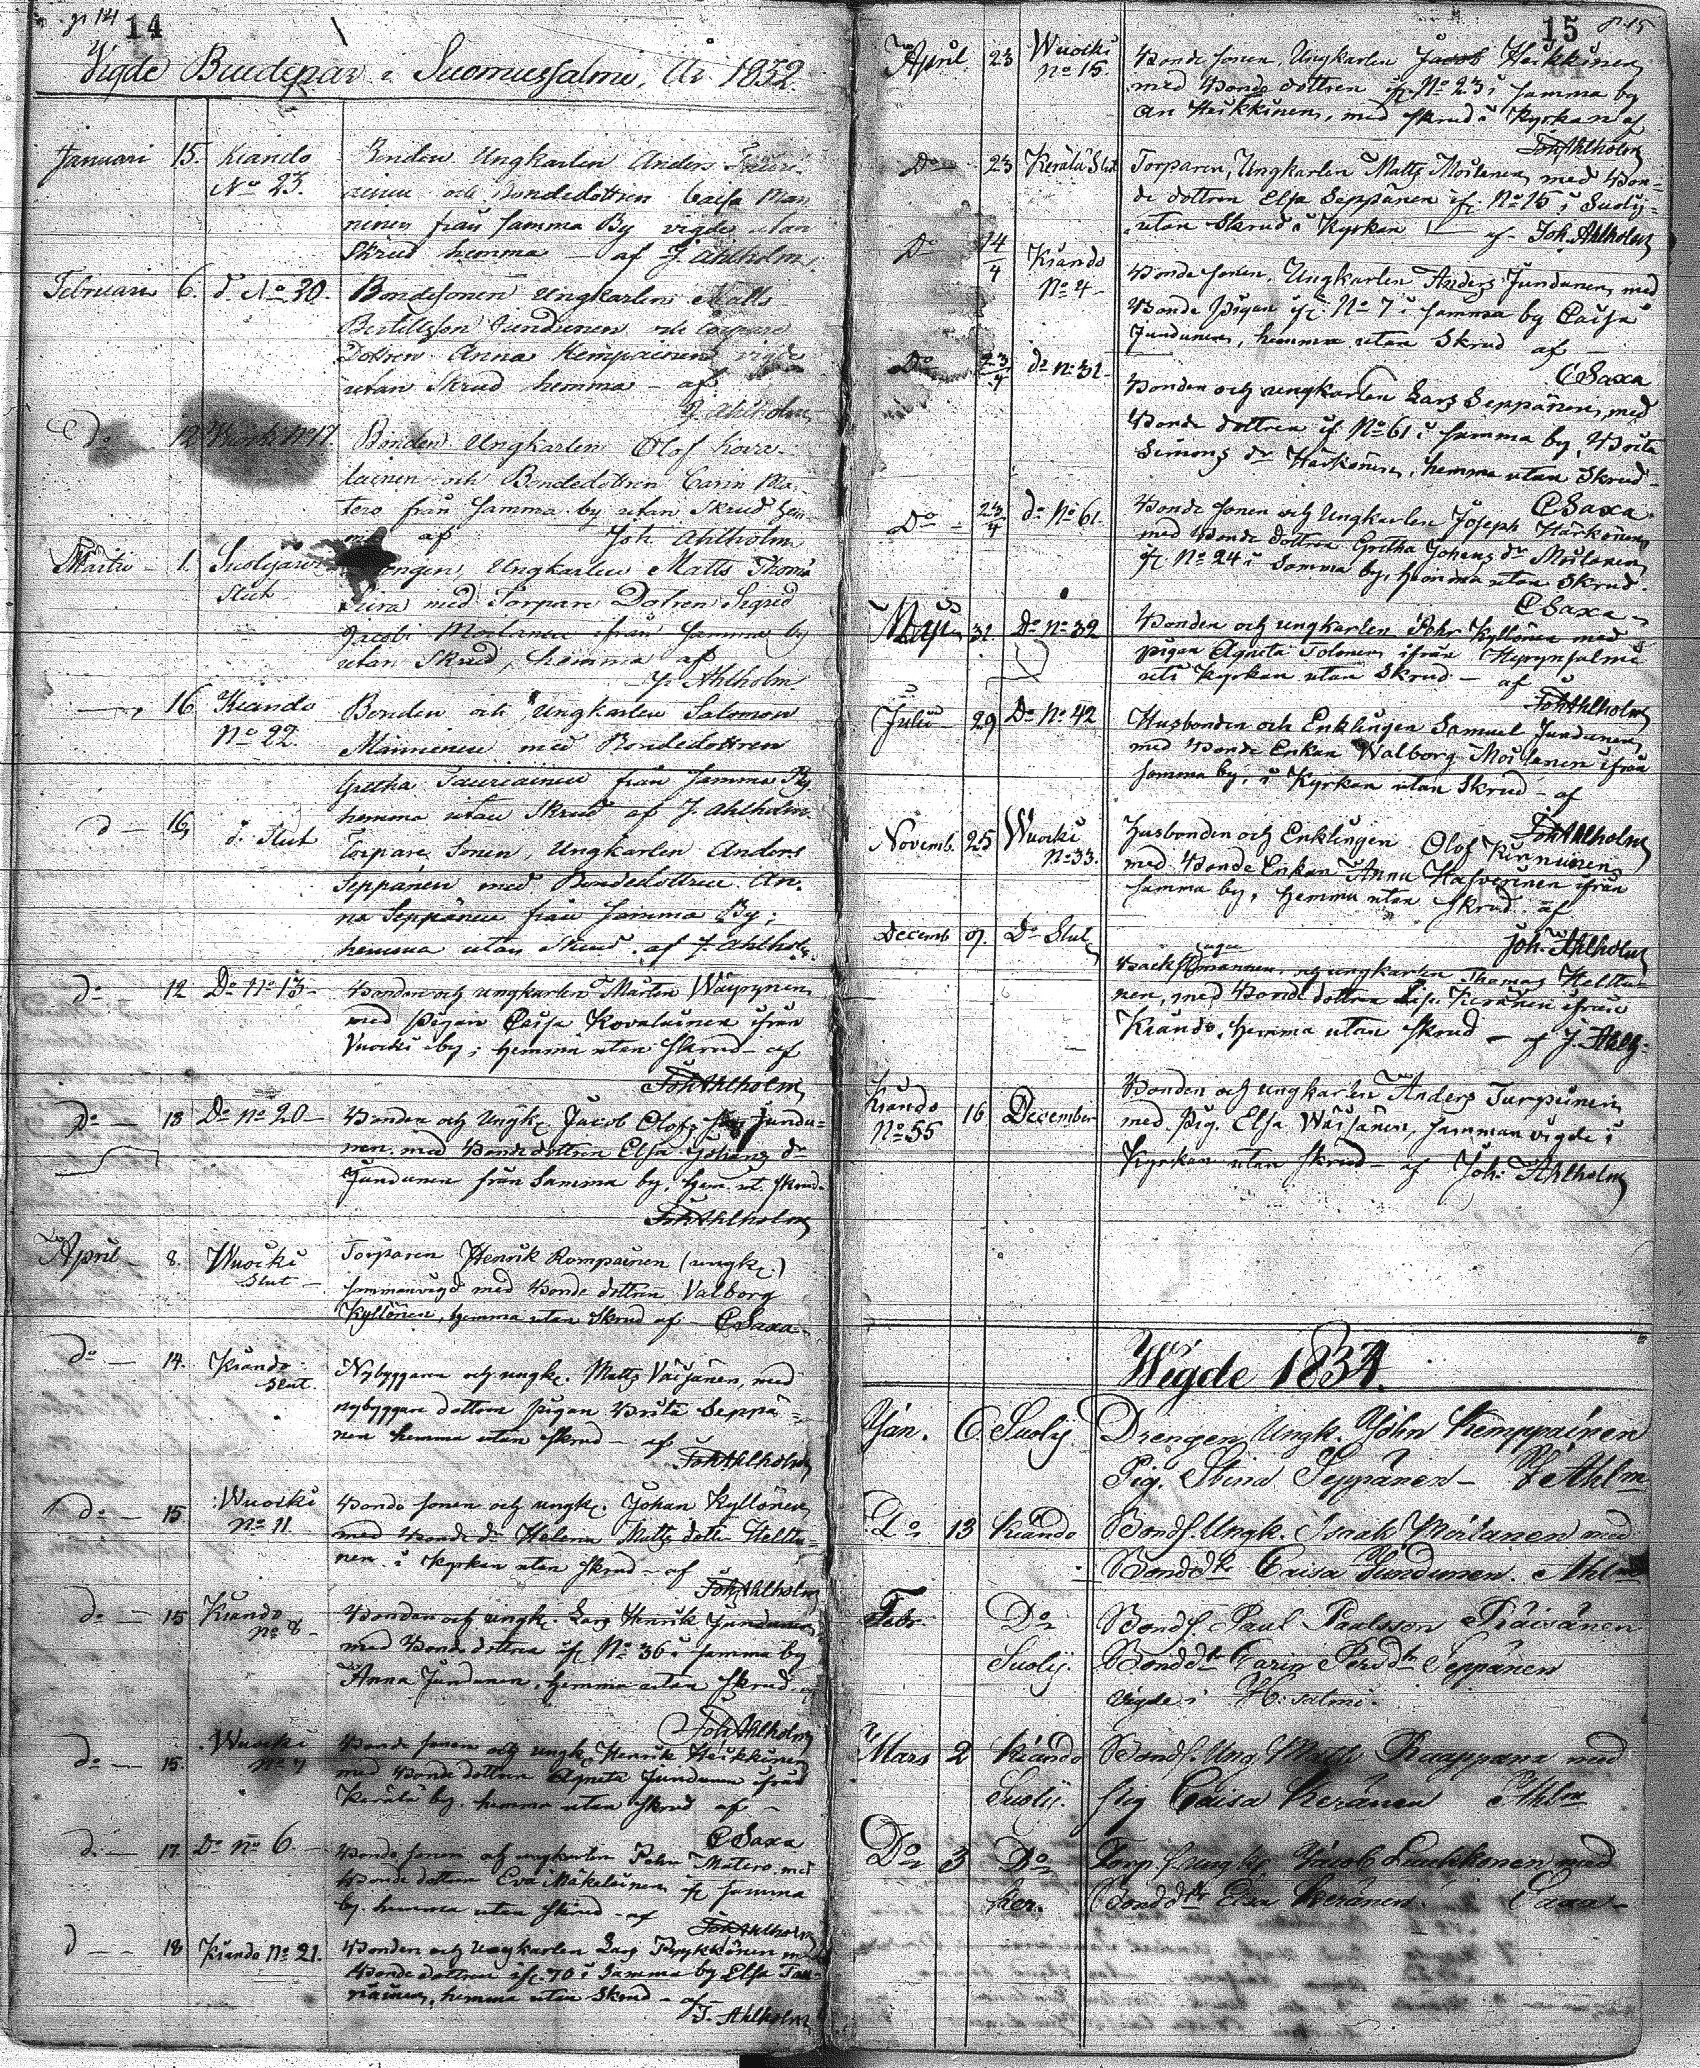 p 14
14
Vigde Brudepar i Suomussalmi, År 1832.
Januari 15. Kiando No 23.
Bonden Ungkarlen Anders
och Bondedottren Caisa Man
ninen från samma By vigde utan
Skrud hemma - af J. Ahlholm.
Februari 6. do No 30.
Bondesonen Ungkarlen Matts
Bertillsson Jundunen och Torpare
Dottren Anna Kemppainen vigde
utan Skrud hemma - af
J. Ahlholm
do No 17.
Bonden Ungkarlen Olof Kova-
lainen och Bondedottren Carin Ma-
tero från samma by utan Skrud hem-
ma af Joh. Ahlholm
Martii - 1. Suolijärvi Slut
Drengen, Ungkarlen Matts Thoms
med Torpare Dottren Sigrid
Jacobi Moilanen ifrån samma by
utan Skrud, hemma af
J. Ahlholm.
16 Kiando No 22.
Bonden och Ungkarlen Salomon
Manninen med Bondedottren
Gretha Tauriainen från samma By
hemma utan Skrud af J. Ahlholm.
d - 16 d. Slut
Torpare Sonen, Ungkarlen Anders
Seppänen med Bondedottren An-
na Seppänen från samma By;
hemma utan Skrud. af J. Ahlholm.
do 12 Do No 13 -
Bonden och ungkarlen Mårten Wäyrynen
med Pigan Caisa Kovalainen ifrån
Vuocki by; hemma utan Skrud - af
Joh Ahlholm
Do - 18 Do No 20 -
Bonden och Ungk. Jacob Olofs son Jundu-
nen med Bondedottren Elsa Johans dr
Jundunen från Samma by, hem. ut. skrud.
Joh Ahlholm
April - 8. Wuocki Slut -
Torparen Henrik Rompainen (ungk.)
sammanvigd med Bonde dottren Valborg
Kyllönen, hemma utan Skrud af CSaxa -
do - 14. Kiando Slut.
Nybyggaren och ungk. Matts Väisänen, med
nybyggare dottren pigan Brita Seppä-
nen hemma utan skrud - af
Joh Ahlholm
do - 15 Wuocki No 11
Bonde sonen och ungk. Johan Kyllönen
med Bonde dr Helena Matts dotter Heltu-
nen i Kyrkan utan skrud - af
Joh Ahlholm
do - 15 Kiando No 8 -
Bonden och ungk. Lars Henrik Jundunen
med Bonde dottren if. No 36 i samma by
Anna Jundunen, hemma utan skrud af
Joh Ahlholm
do - 15. Wuocki
Bonde sonen och ungk. Henrik Heikkinen
med Bonde dottren Agneta Jundunen ifrån
Kerälä by. hemma utan skrud af -
CSaxa
d. - 17. Do No 6. -
Bonde sonen och ungkarlen Pehr Matero, med
Bonde dottren Eva Mäkeläinen if. samma
by. hemma utan skrud - af
Joh Ahlholm
d - - 18 Kiando No 21.
Bonden och Ungkarlen Lars Pyykkönen med
Bonde dottren if. 70 i samma by Elsa Tau-
riainen, hemma utan skrud - af
J. Ahlholm
15 p. 15
April 23 Wuocki No 15.
Bonde sonen, Ungkarlen Jacob Heikkinen
med Bonde dottren if. No 23 i samma by
An Heikkinen, med skrud i Kyrkan af
Joh Ahlholm
Do - 23 Kerälä Slut
Torparen, Ungkarlen Matts Moilanen med Bon-
de dottren Elsa Seppänen if. No 15 i Suolij-
utan skrud i Kyrkan af Joh. Ahlholm
Do 14/4 Kiando No 4 -
Bonde sonen, Ungkarlen Anders Jundunen med
Bonde Pigan if. No 7 i samma by Caisa
Jundunen, hemma utan Skrud af -
CSaxa
Do 23/4 do No 31 -
Bonden och ungkarlen Lars Seppänen, med
Bonde dottren if No 61 i samma by, Brita
Simons dr Härkönen, hemma utan Skrud -
CSaxa.
Do - 23/4 do No 61.
Bonde sonen och Ungkarlen Joseph Härkönen
med Bonde dottren Gretha Johans dr Moilanen
if. No 24 i samma by, hemma utan skrud.
CSaxa -
Maji 31. Do No 32
Bonden och ungkarlen Pehr Kyllönen med
pigan Agneta Tolonen ifrån Hyrynsalmi
uti Kyrkan utan skrud - af
Joh Ahlholm
Julii 29 Do No 42
Husbonden och Enklingen Samuel Jundunen
med Bonde Enkan Walborg Moilanen ifrån
samma by, i Kyrkan utan skrud - af
Joh Ahlholm
Novemb. 25 Wuocki No 33.
Husbonden och Enklingen Olof Kinnunen
med Bonde Enkan Anna Hafverinen ifrån
samma by, hemma utan skrud af
Joh. Ahlholm
Decemb 9. Do Slut
och ungkarlen Thomas Heltu-
nen, med Bonde dottren Lisa Keränen ifrån
Kiando, hemma utan skrud - af J. Ahlh.
Kiando No 55 16 December
Bonden och ungkarlen Anders Turpeinen
med Pig. Elsa Wäisänen, samman vigde i
Kyrkan utan skrud - af Joh. Ahlholm
Wigde 1834.
Jan. 6 Suolij.
Drengen Ungk. John Kemppainen
Pig. Stina Seppänen - J Ahlm
Do 13 Kiando
Bonds. Ungk. Isaak Moilanen med
Bondedtr Caisa Jundunen. Ahlm
Febr. Do Suolij.
Bonds. Paul Paulsson Räisänen
Bonddtr Carin Persdtr Seppänen
Vigde i H:salmi.
Mars 2 Kiando Suolij.
Bonds. Ung Matts Kaappana med
pig Caisa Keränen Ahlm
Do 3 Do Ker.
Torp. s. ungk Jacob Luukkonen med
Bonddtr Elsa Keränen. Saxa -